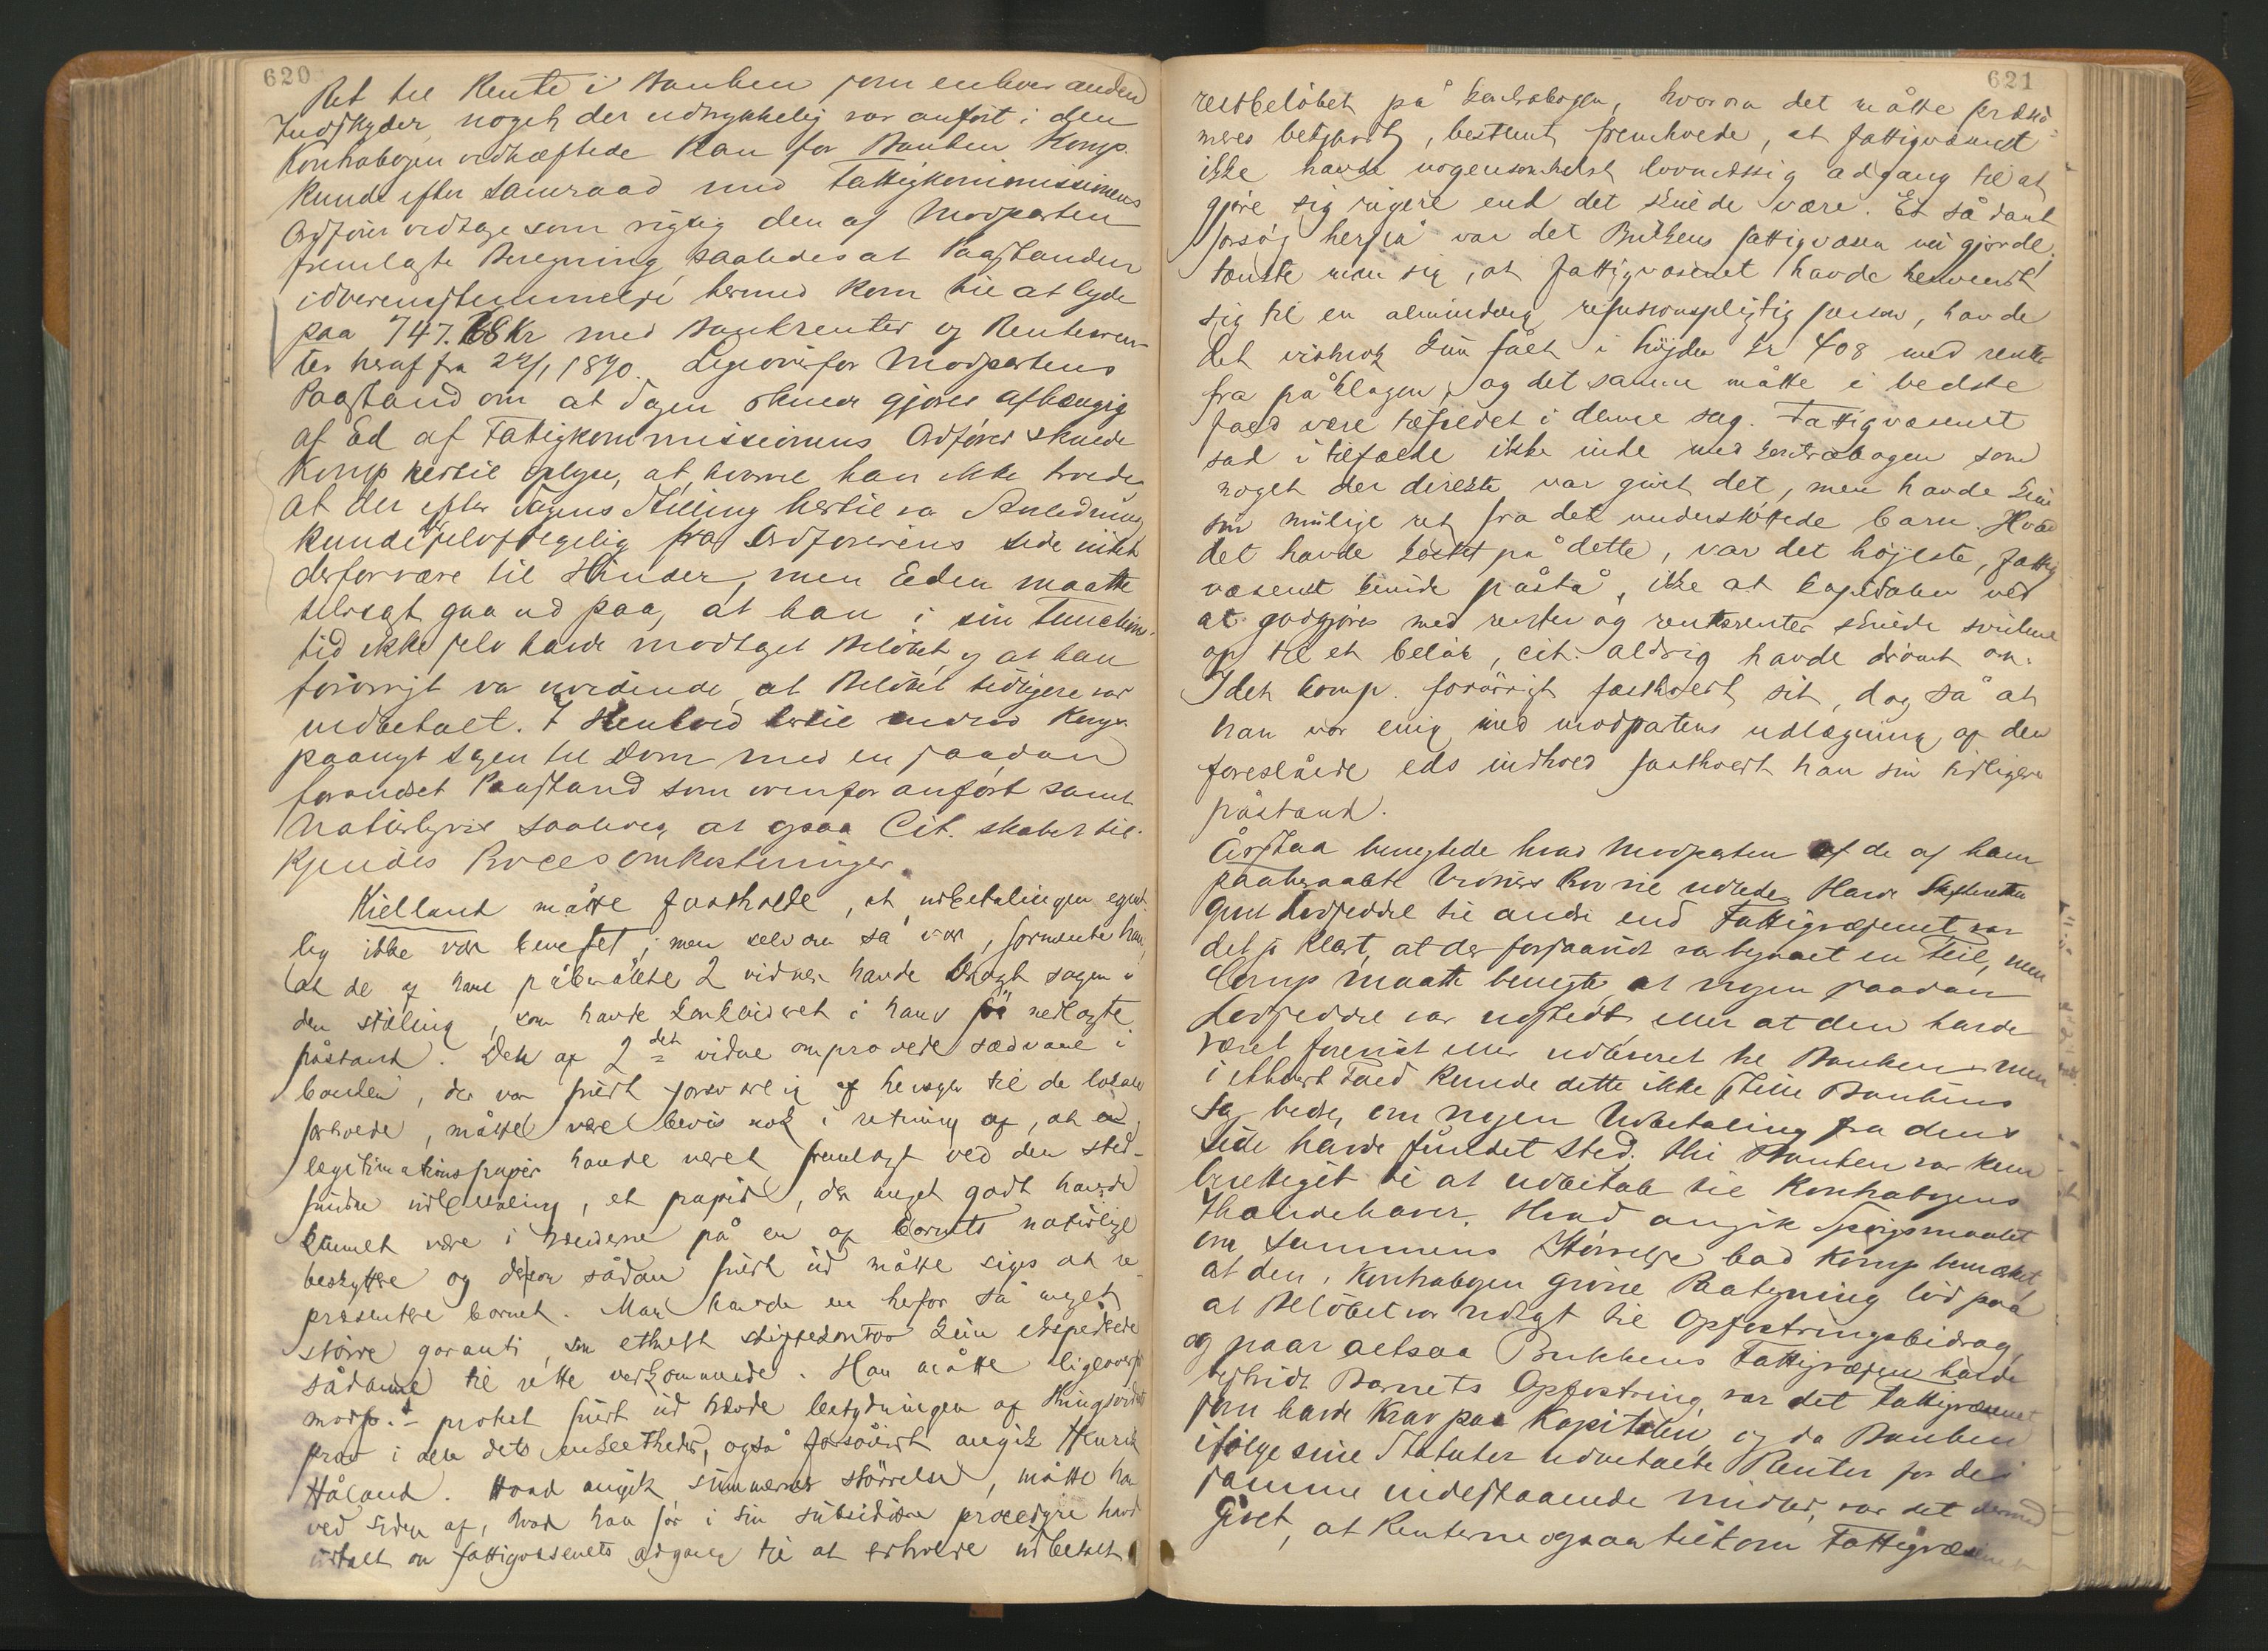 620
Ret til Rente i Banken som enhver anden
Indskyder, noget der udtrykkelig var anført i den
Kontrabogen vedhæftede Plan for Banken. Komp.
kunde efter Samraad med Fattigkommissionens
Ordfører vedtage som rigtig den af Modparten
fremlagte Beregning, saaledes at Paastanden
i Overensstemmelse hermed kom til at lyde
paa 747.68 Kr med Bankrenter og Renters ren-
ter heraf fra 1890. Ligeoverfor Modpartens
Paastand om at Sagen skuer gjøres afhængig
af Ed af Fattigkommissionens Ordfører skulde
Komp hertil oplyse, at hvorvel han ikke troede
at der efter Sagens Stilling hertil var Anledning
kunde selvfølgelig fra Ordførerens Side intet
derfor være til Hinder, men Eden maatte
selvsagt gaa ud paa, at han i sin Functions-
tid ikke selv havde modtaget Beløbet, og at han
forøvrigt var uvidende, at Beløbet tidligere var
udbetalt. I Henhold hertil Komp
paanyt Sagen til Dom med en saadan
forandret Paastand som ovenfor anført samt
naturligvis saaledes, at ogsaa Cit. skabet til-
kjendes Procesomkostninger.
Kielland måtte fastholde, at udbetalingen egent-
lig ikke var bevist; men selv om så var, formente han,
at de af ham påberåbte 2 vidner havde bragt sagen i
den stilling, som havde konkluderet i hans nedlagte
påstand. Den af 2det vidne omprovede sædvane i
banken, der var fuldt forsvarlig af hensyn til de lokale
forholde, måtte være bevis nok i retning af, at
legitimationspapir havde været fremlagt ved den sted-
fundne udbetaling, et papir, der meget godt havde
kunnet være i hænderne på en af barnets naturlige
beskyttere og derfor sådan fuldt ud måtte siges at re-
præsentere barnet. Man havde en herfor så meget
større garanti, som ethvert skiftekontor kun expederede
sådanne til rette vedkommende. Han måtte ligeoverfor
modp.s protest fuldt ud hævde betydningen af thingsvidnets
prov i alle dets enkeltheder, også forsåvidt angik Henrik
Håland. Hvad angik summernes størrelse, måtte han
ved siden af, hvad han før i sin subsidiære procedyre havde
udtalt om fattigvæsenets adgang til at erholde udbetalt
621
restbeløbet på kontrabogen, hvorom det måtte præsu-
meres betydet, bestemt fremholde, at fattigvæsenet
ikke havde nogensomhelst lovmæssig adgang til at
gjøre sig rigere end det skulde være. Et sådant
forsøg herpå var det Bukkens fattigvæsen nu gjorde.
tænkte man sig, at fattigvæsenet havde henvendt
sig til en almindelig refusionspligtig person, havde
det vistnok kun fået i højden kr 408 med renter
fra påklagen, og det samme måtte i bedste
fald være tilfældet i denne sag. Fattigvæsenet
sad i tilfælde ikke inde med kontrabogen som
noget der direkte var givet det, men havde kun
sin mulige ret fra det understøttede barn. Hvad
det havde kostet på dette, var det højeste, fattig
væsenet kunde påstå, ikke at kapitalen ved
at godgjøres med renter og rentesrenter skulde svulme
op til et beløb, cit. aldrig havde drømt om.
Idet komp. forøvrigt fastholdt sit, dog så at
han var enig med modpartens udlægning af den
foreslåede eds indhold fastholdt han sin tidligere
påstand.
Årstaa benegtede hvad Modparten af de af ham
paaberaabte Vidners Prov vil udlede. Havde Skifteretten
givet Lodseddel til andre end Fattigvæsenet var
det jo klart, at der forsaavidt var begaaet en Feil, men
Comp maatte benegte, at nogen saadan
Lodseddel var udstedt eller at den havde
været forevist eller udleveret til Banken. men
i ethvert Fald kunde dette ikke stille Bankens
Sag bedre, om nogen Udbetaling fra dens
Side havde fundet Sted; thi Banken var kun
berettiget til at udbetale til Kontrabogens
Ihændehaver. Hvad angik Spørgsmaalet
om Summens Størrelse bad Komp bemærket,
at den i Kontrabogen givne Paategning lød paa
at Beløbet var udlagt til Opfostringsbidrag,
og naar altsaa Bukkens Fattigvæsen havde
bestridt Barnets Opfostring, var det Fattigvæsenet
som havde Krav paa Kapitalen, og da Banken
ifølge sine Statuter udbetalte Renter for de
samme indestaaende Midler, var det dermed
givet, at Renterne ogsaa tilkom Fattigvæsenet